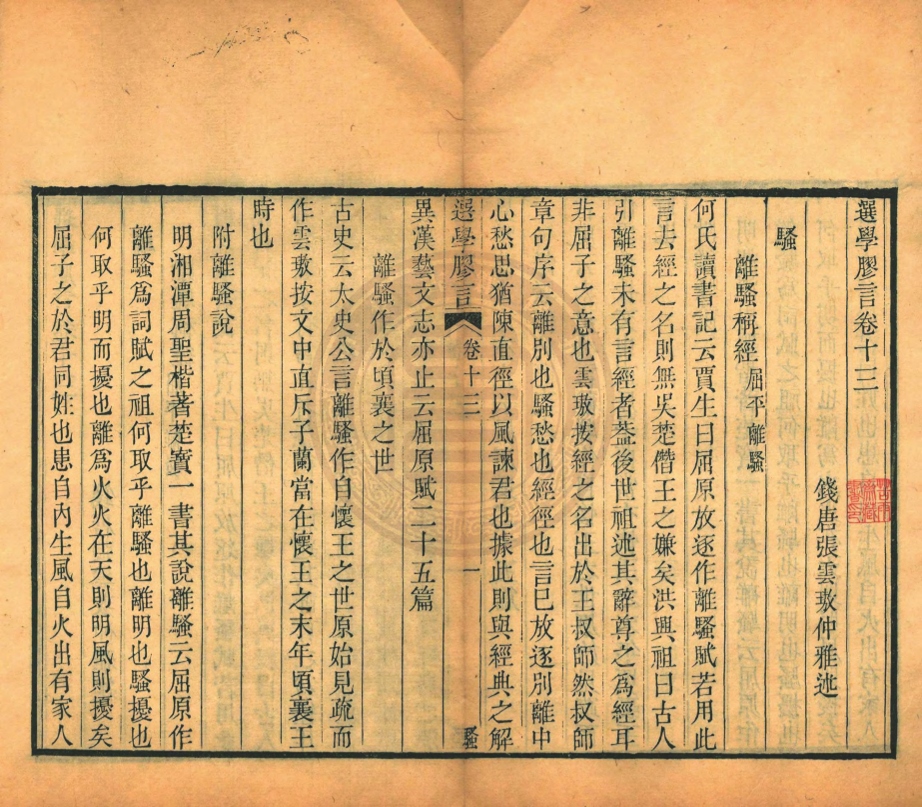 選學膠言卷十三
錢唐張雲璈仲雅述
騷
離騷稱經 屈平離騷
何氏讀書記云賈生曰屈原放逐作離騷賦若用此
言去經之名則無吳楚僭王之嫌矣洪興祖曰古人
引離騷未有言經者葢後世祖述其辭尊之爲經耳
非屈子之意也雲璈按經之名出於王叔師然叔師
章句序云離別也騷愁也經徑也言已放逐別離中
心愁思猶陳直徑以風諫君也據此則與經典之解
選學膠言 卷十三 一 騷
異漢藝文志亦止云屈原賦二十五篇
離騷作於頃襄之世
古史云太史公言離騷作自懷王之世原始見疏而
作雲璈按文中直斥子蘭當在懷王之末年頃襄王
時也
附離騷說
明湘潭周聖楷著楚寶一書其說離騷云屈原作
離騷爲詞賦之祖何取乎離騷也離明也騷擾也
何取乎明而擾也離爲火火在天則明風則擾矣
屈子之於君同姓也患自內生風自火出有家人